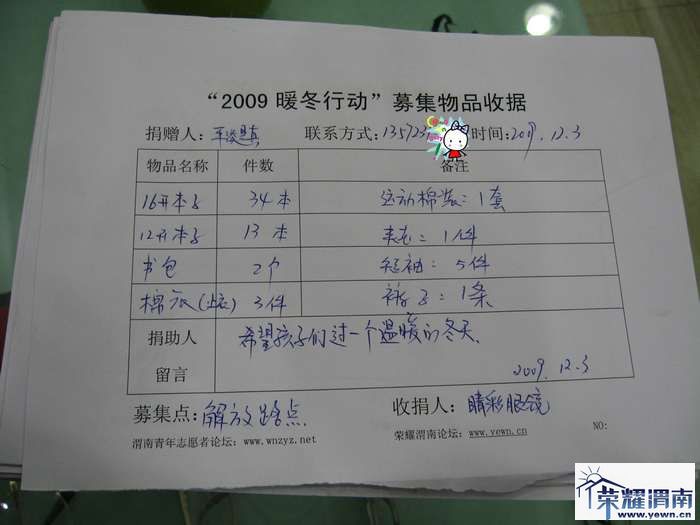 “2009 暖冬行动”募集物品收据
捐赠人: 联系方式:13572 时间:2009.12.3
物品名称 件数 备注
16开本子 34本 运动棉装:1套
12开本子 13本 夹克:1件
书包 2个 短袖:5件
棉衣(上衣) 3件 裤子:1条
捐助人 希望孩子们过一个温暖的冬天、
留言 2009.12.3
募集点:解放路点 收捐人:睛彩眼镜
渭南青年志愿者论坛:www.wnzyz.net 荣耀渭南论坛:www.yewn.cn NO:
荣耀渭南
www.yewn.cn